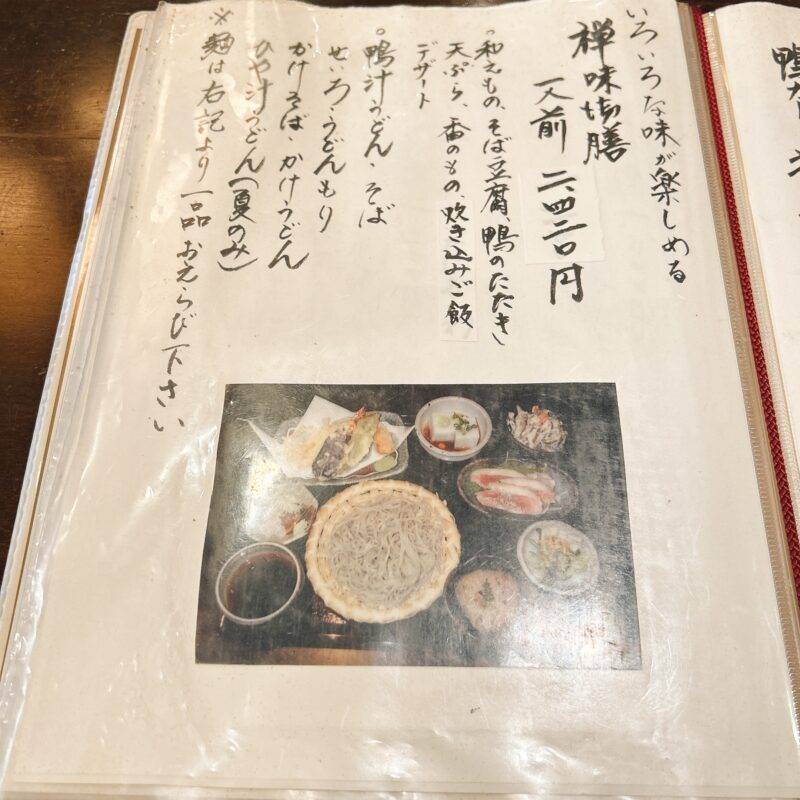 いろいろな味が楽しめる
禅味場膳
一人前 二、四二〇円
。和えもの、そば豆腐、鴨のたたき
天ぷら、香のもの、炊き込みご飯
デザート
。鴨汁うどん・そば
せいろ・うどんもり
かけそば・かけうどん
ひや汁うどん(夏のみ)
※麺は右記より一品おえらび下さい